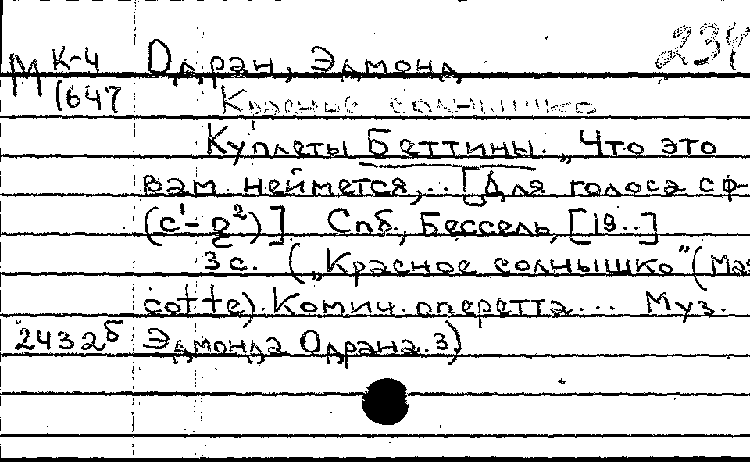 М К-4 Одран, Эдмонд 234
1647 Красное солнышко
Куплеты Беттины. „Что это
вам неймется,.. [Для голоса с ф-
(c¹-g²)] Спб., Бессель, [19..]
3 с. („Красное солнышко" (Mas
cotte). Комич. оперетта... Муз.
2432б Эдмонда Одрана. 3)